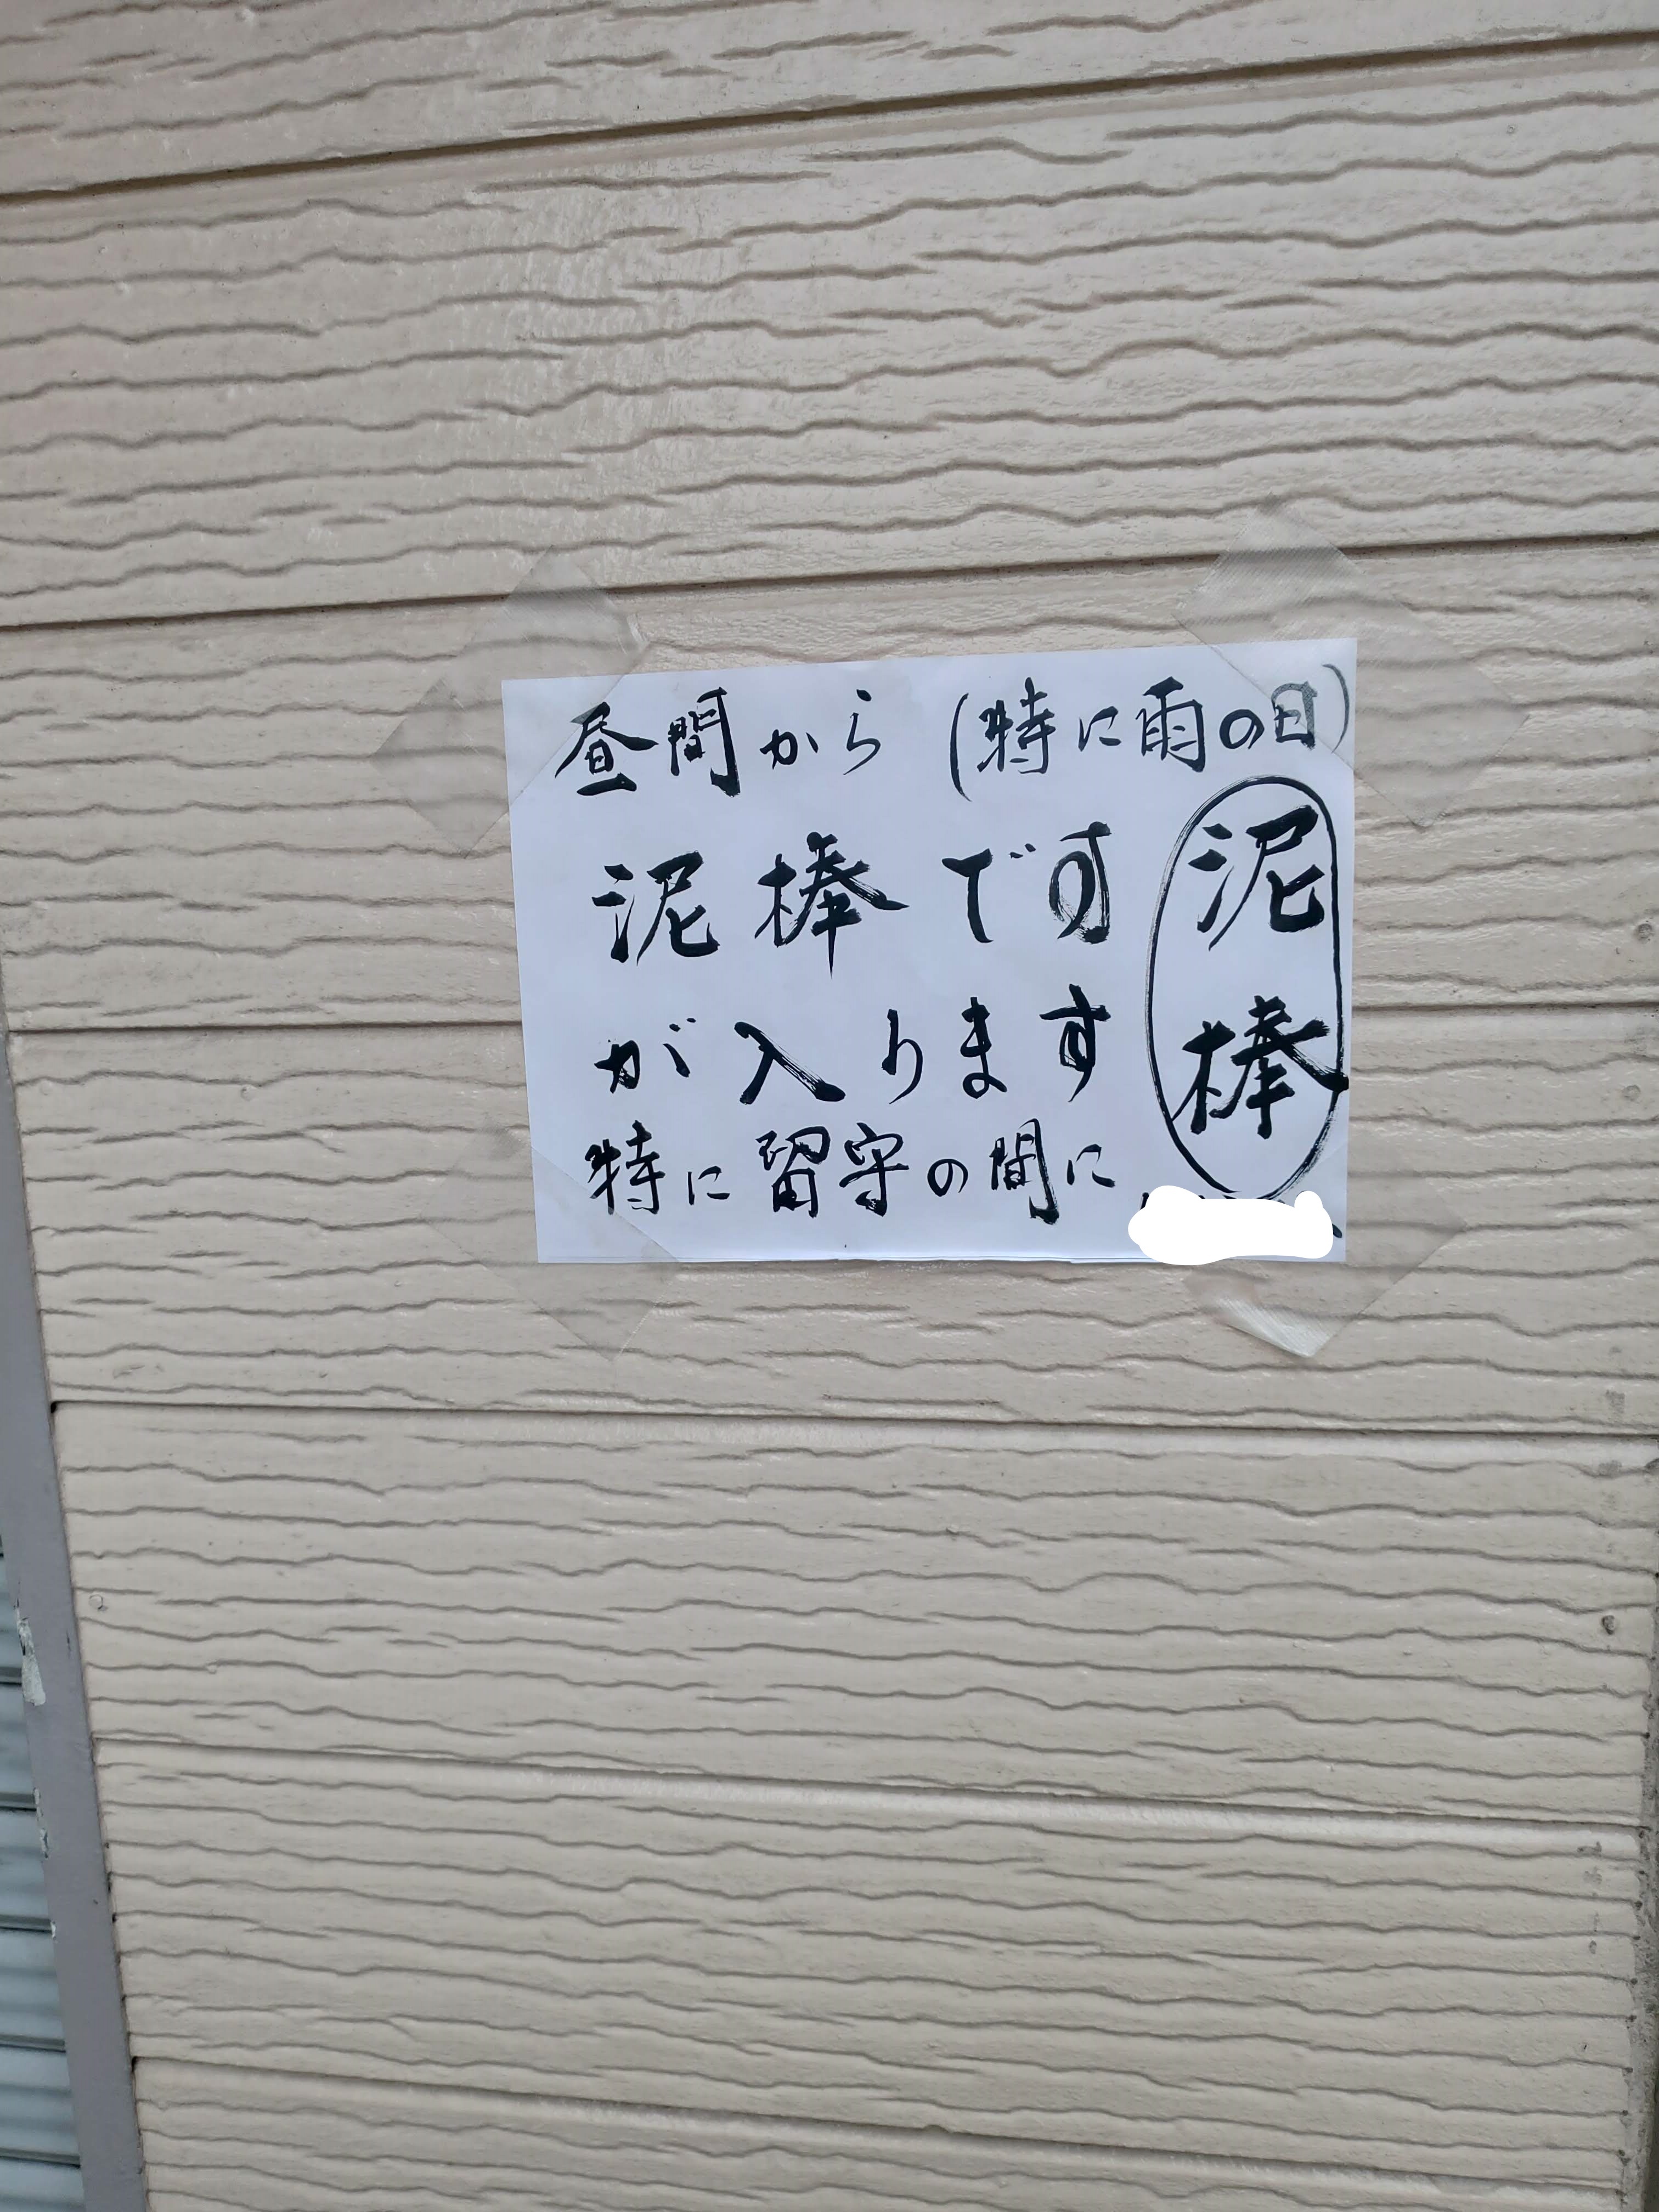 昼間から(特に雨の日)
泥棒です
が入ります
特に留守の間に
泥棒